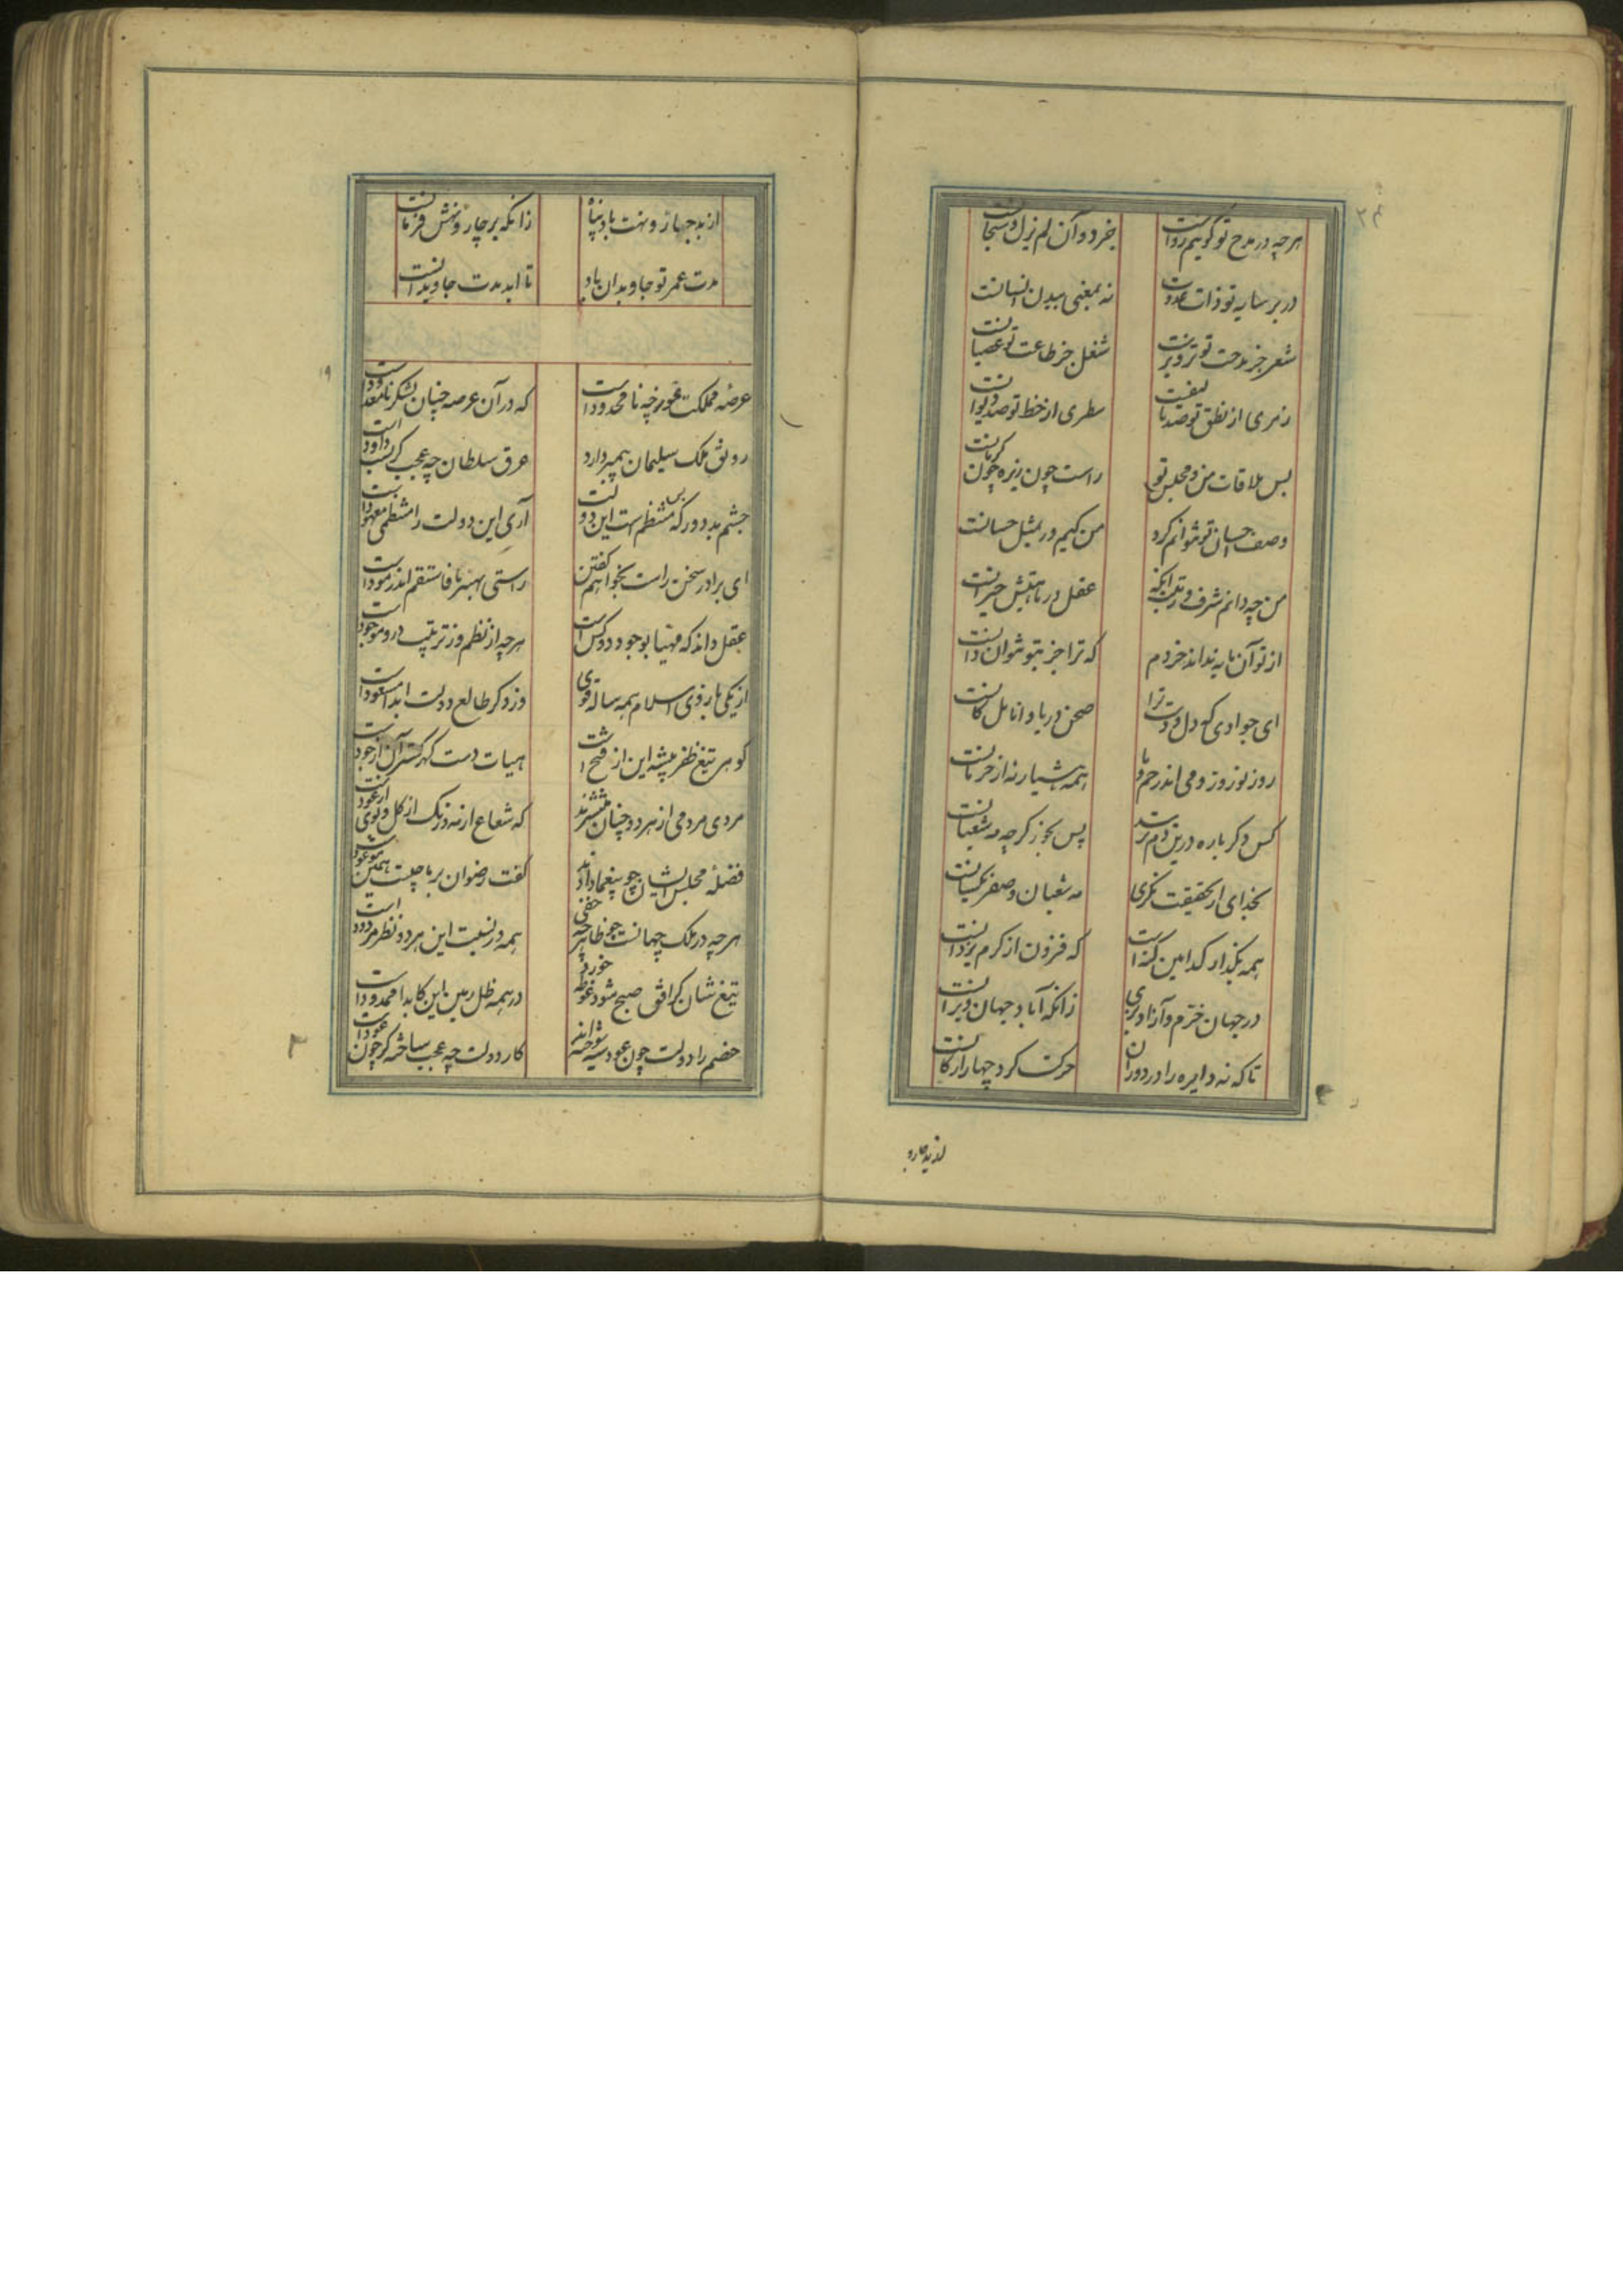 ۲۴
هرچه در مدح تو گویم رواست
جز دو آن لم یزل و سبحانست
در بر سایه تو ذات عدوت
نه بمعنی ببدن انسانست
شعر جز مدحت تو تزویرست
شغل جز طاعت تو عصیانست
رمزی از نطق تو صد تالیفست
سطری از خط تو صد دیوانست
بس ملاقات من و مجلس تو
راست چون زیره و چون کرمانست
وصف احسان تو نتوانم کرد
من کیم ور بمثل حسانست
من چه دانم شرف و رتبت آنکه
عقل در ماهیتش حیرانست
از تو آن مایه نداند خردم
که ترا جز بتو نتوان دانست
ای جوادی که دل و دست ترا
صحن دریا و انامل کانست
روز نوروز و می اندر خم و ما
همه هشیار نه از حرمانست
کس دگرباره درین دم نرسد
پس بخور گرچه مه شعبانست
بخدای ار بحقیقت نگری
مه شعبان و صفر یکسانست
همه بگذار کدامین گنه است
که فزون از کرم یزدانست
در جهان خرم و آزاد بزی
زانکه آباد جهان ویرانست
تا که نه دایره را در دوران
حرکت گرد چهار ارکانست
از بد چهار و
از بد چهار و نهت باد پناه
زانکه بر چار و نهش فرمانست
مدت عمر تو جاویدان باد
تا ابد مدت جاویدانست
عرصه مملکت غور چه نامحدودست
که در آن عرصه چنان لشکر نامعدودست
رونق ملک سلیمان پیمبر دارد
عرق سلطان چه عجب کز نسب داودست
چشم بد دور که بس منتظم است این دولت
آری این دولت را منتظمی معهودست
ای برادر سخن راست بخواهم گفتن
راستی بهتر تا فاستقم اندر هودست
عقل داند که مهیا بوجود دو کس است
هرچه از نظم وز ترتیب درو موجودست
از یکی بازوی اسلام همه ساله قوی
وز دگر طالع دولت ابدا مسعودست
گوهر تیغ ظفر پیشه این از فتح است
هیات دست گهر گستر آن از جودست
مردی مردمی از هر دو چنان منتشرند
که شعاع از مه و رنگ از گل و بوی از عودست
فضله مجلس ایشان چو بیغما دادند
گفت رضوان بر ما چیست همین موعودست
هرچه در ملک جهانست چه ظاهر چه خفی
همه در نسبت این هر دو نظر مردودست
تیغ شان گر افق صبح شود غوطه خورد
در همه ظل زمین این کابدا ممدودست
خصم را دولت چون عود سیه سوخته اند
کار دولت چه عجب ساخته گر چون عودست